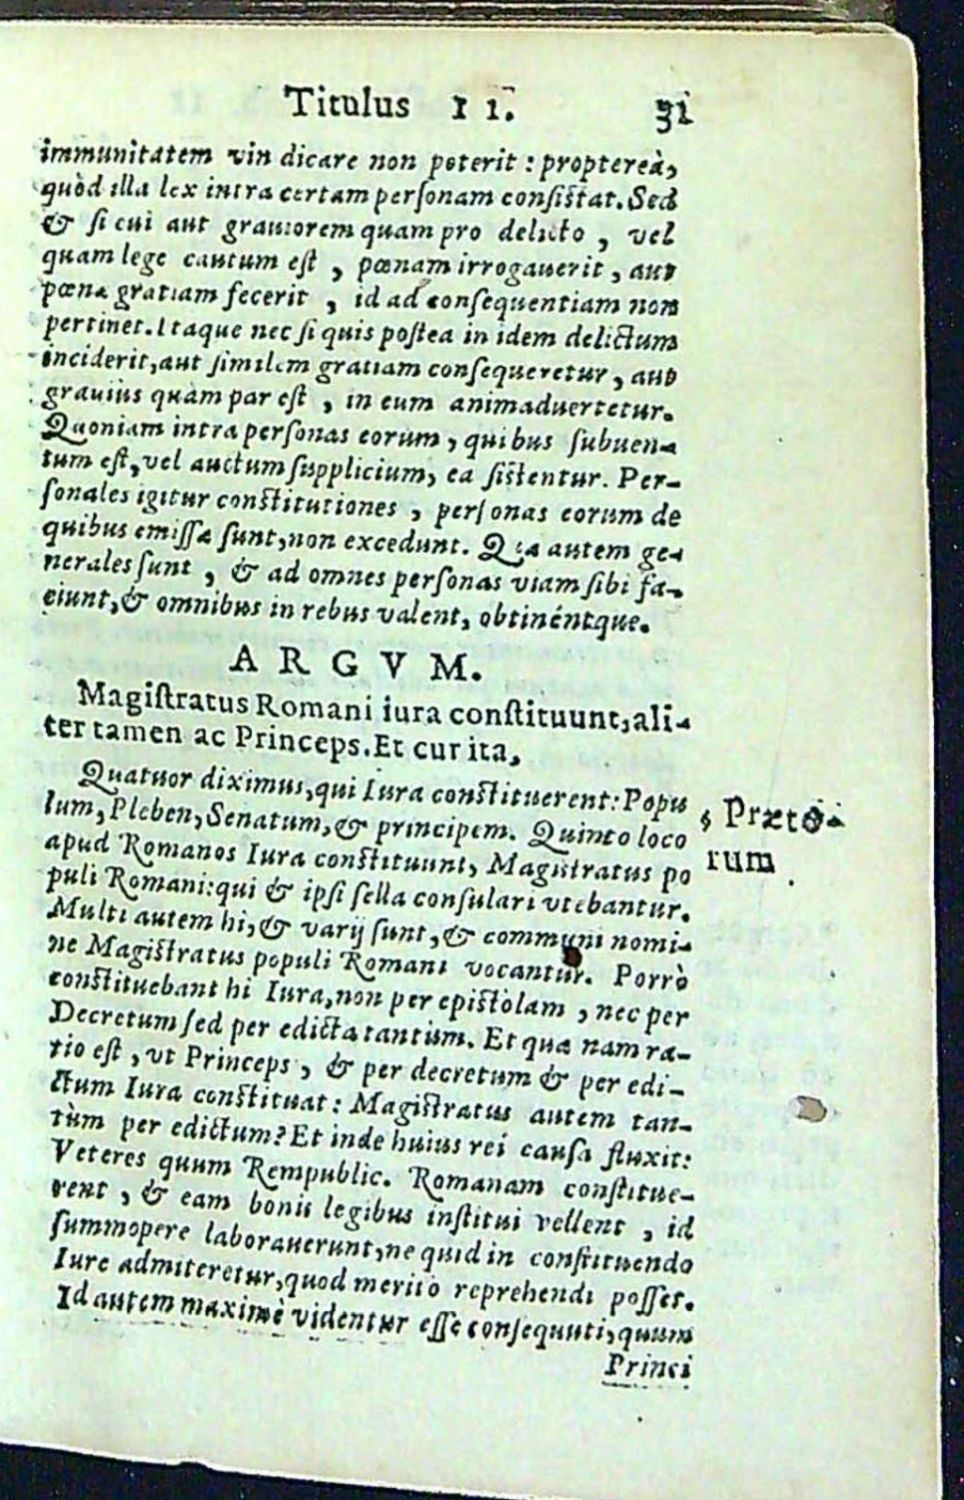 Titulus II. 31
immunitatem vin dicare non poterit : propterea,
quòd illa lex intra certam personam consistat. Sed
& si cui aut grauiorem quam pro delicto , vel
quam lege cautum est , pœnam irrogauerit , aut
pœnæ gratiam fecerit , id ad consequentiam non
pertinet. Itaque nec si quis postea in idem delictum
inciderit, aut similem gratiam consequeretur , aut
grauius quàm par est , in eum animaduertetur.
Quoniam intra personas eorum , quibus subuen-
tum est, vel auctum supplicium, ea sistentur. Per-
sonales igitur constitutiones , personas eorum de
quibus emissæ sunt, non excedunt. Quæ autem ge-
nerales sunt , & ad omnes personas viam sibi fa-
ciunt, & omnibus in rebus valent, obtinéntque.
ARGVM.
Magistratus Romani iura constituunt, ali-
ter tamen ac Princeps. Et cur ita,
Quatuor diximus, qui Iura constituerent: Popu
lum, Plebem, Senatum, & principem. Quinto loco
apud Romanos Iura constituunt, Magistratus po
puli Romani: qui & ipsi sella consulari vtebantur.
Multi autem hi, & varij sunt, & communi nomi-
ne Magistratus populi Romani vocantur. Porrò
constituebant hi Iura, non per epistolam , nec per
Decretum sed per edicta tantùm. Et qua nam ra-
tio est , vt Princeps , & per decretum & per edi-
ctum Iura constituat: Magistratus autem tan-
tùm per edictum? Et inde huius rei causa fluxit:
Veteres quum Rempublic. Romanam constitue-
rent , & eam bonis legibus institui vellent , id
summopere laborauerunt, ne quid in constituendo
Iure admitteretur, quod merito reprehendi posset.
Id autem maximè videntur esse consequuti, quum
Princi
§ Præto-
rum